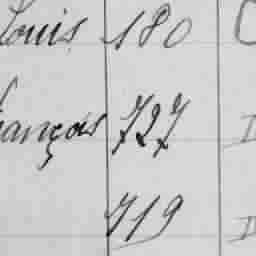 Louis 180
ançois 727
719